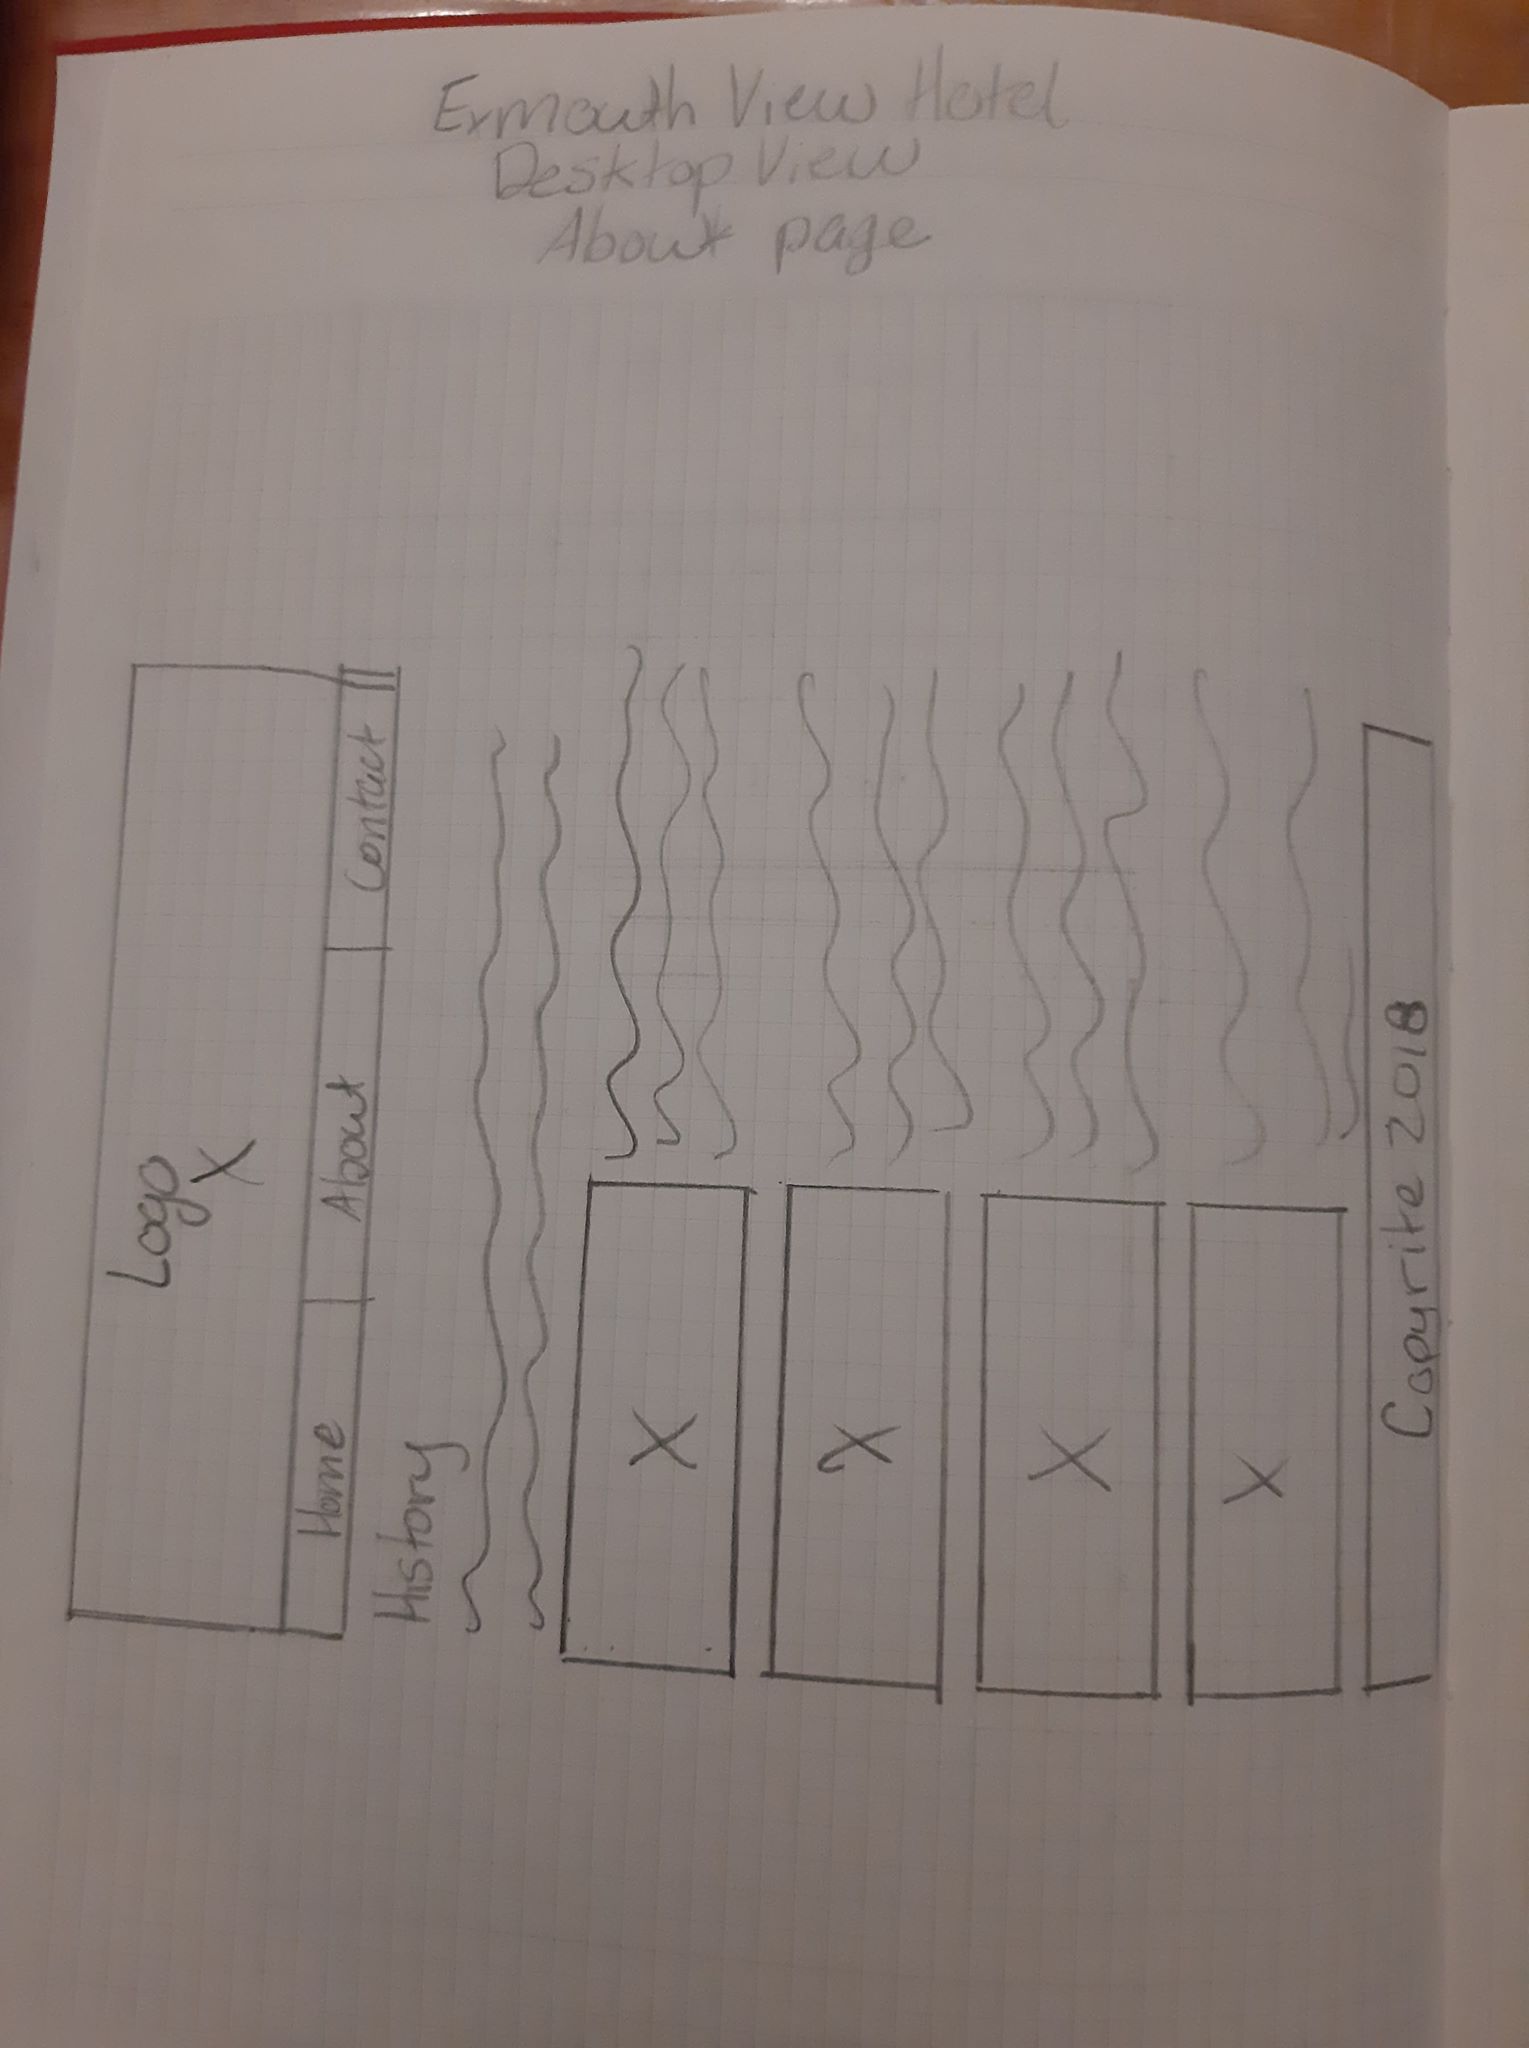 Exmouth View Hotel
Desktop View
About page
Logo
X
Home About Contact
History
X
X
X
X
Copyrite 2018